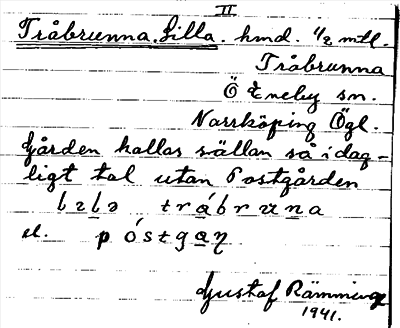 II
Tråbrunna, Lilla. hmd. 1/2 mtl.
Tråbrunna
Ö Eneby sn.
Norrköping Ögl.
Gården kallas sällan så i dag-
ligt tal utan Postgården
el. póstgaɳ
Gustaf Rämming
1941.